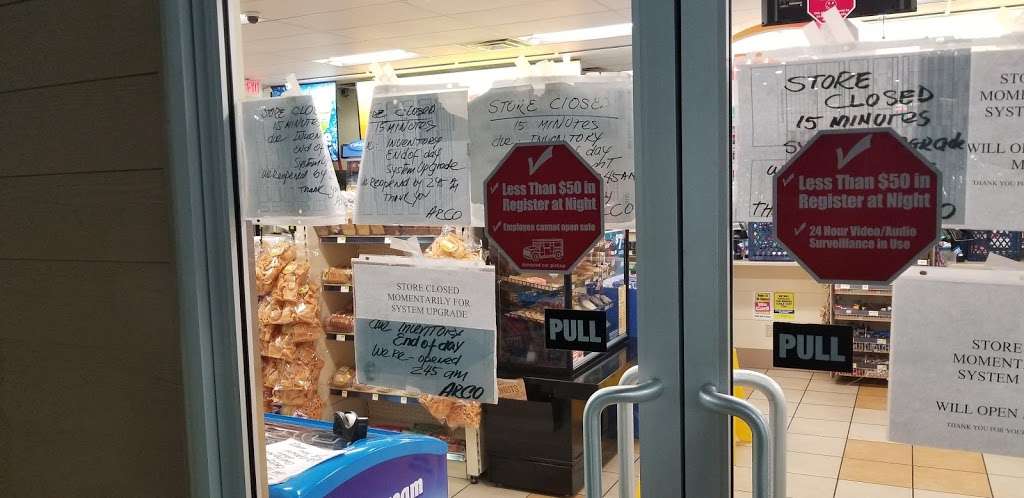 STORE CLOS
15 MINUTES
due Inven
End of
System
We reopened by 2
Thank you
CLOSED
15 MINUTES
due INVENTORY
End of day
System Upgrade
We reopened by 2:45 am
Thank you
ARCO
STORE CLOSED
15 MINUTES
due INVENTORY
day
45 AM
CO
Less Than $50 in
Register at Night
Employee cannot open safe
Armored car pickup
PULL
STORE CLOSED
MOMENTARILY FOR
SYSTEM UPGRADE
due Inventory
End of day
We re-opened
2:45 am
ARCO
STORE
CLOSED
15 MINUTES
Less Than $50 in
Register at Night
24 Hour Video/Audio
Surveillance in Use
PULL
STO
MOME
SYST
WILL O
M
THANK YOU FOR
STORE
MOMENT
SYSTEM
WILL OPEN
THANK YOU FOR YOU
am